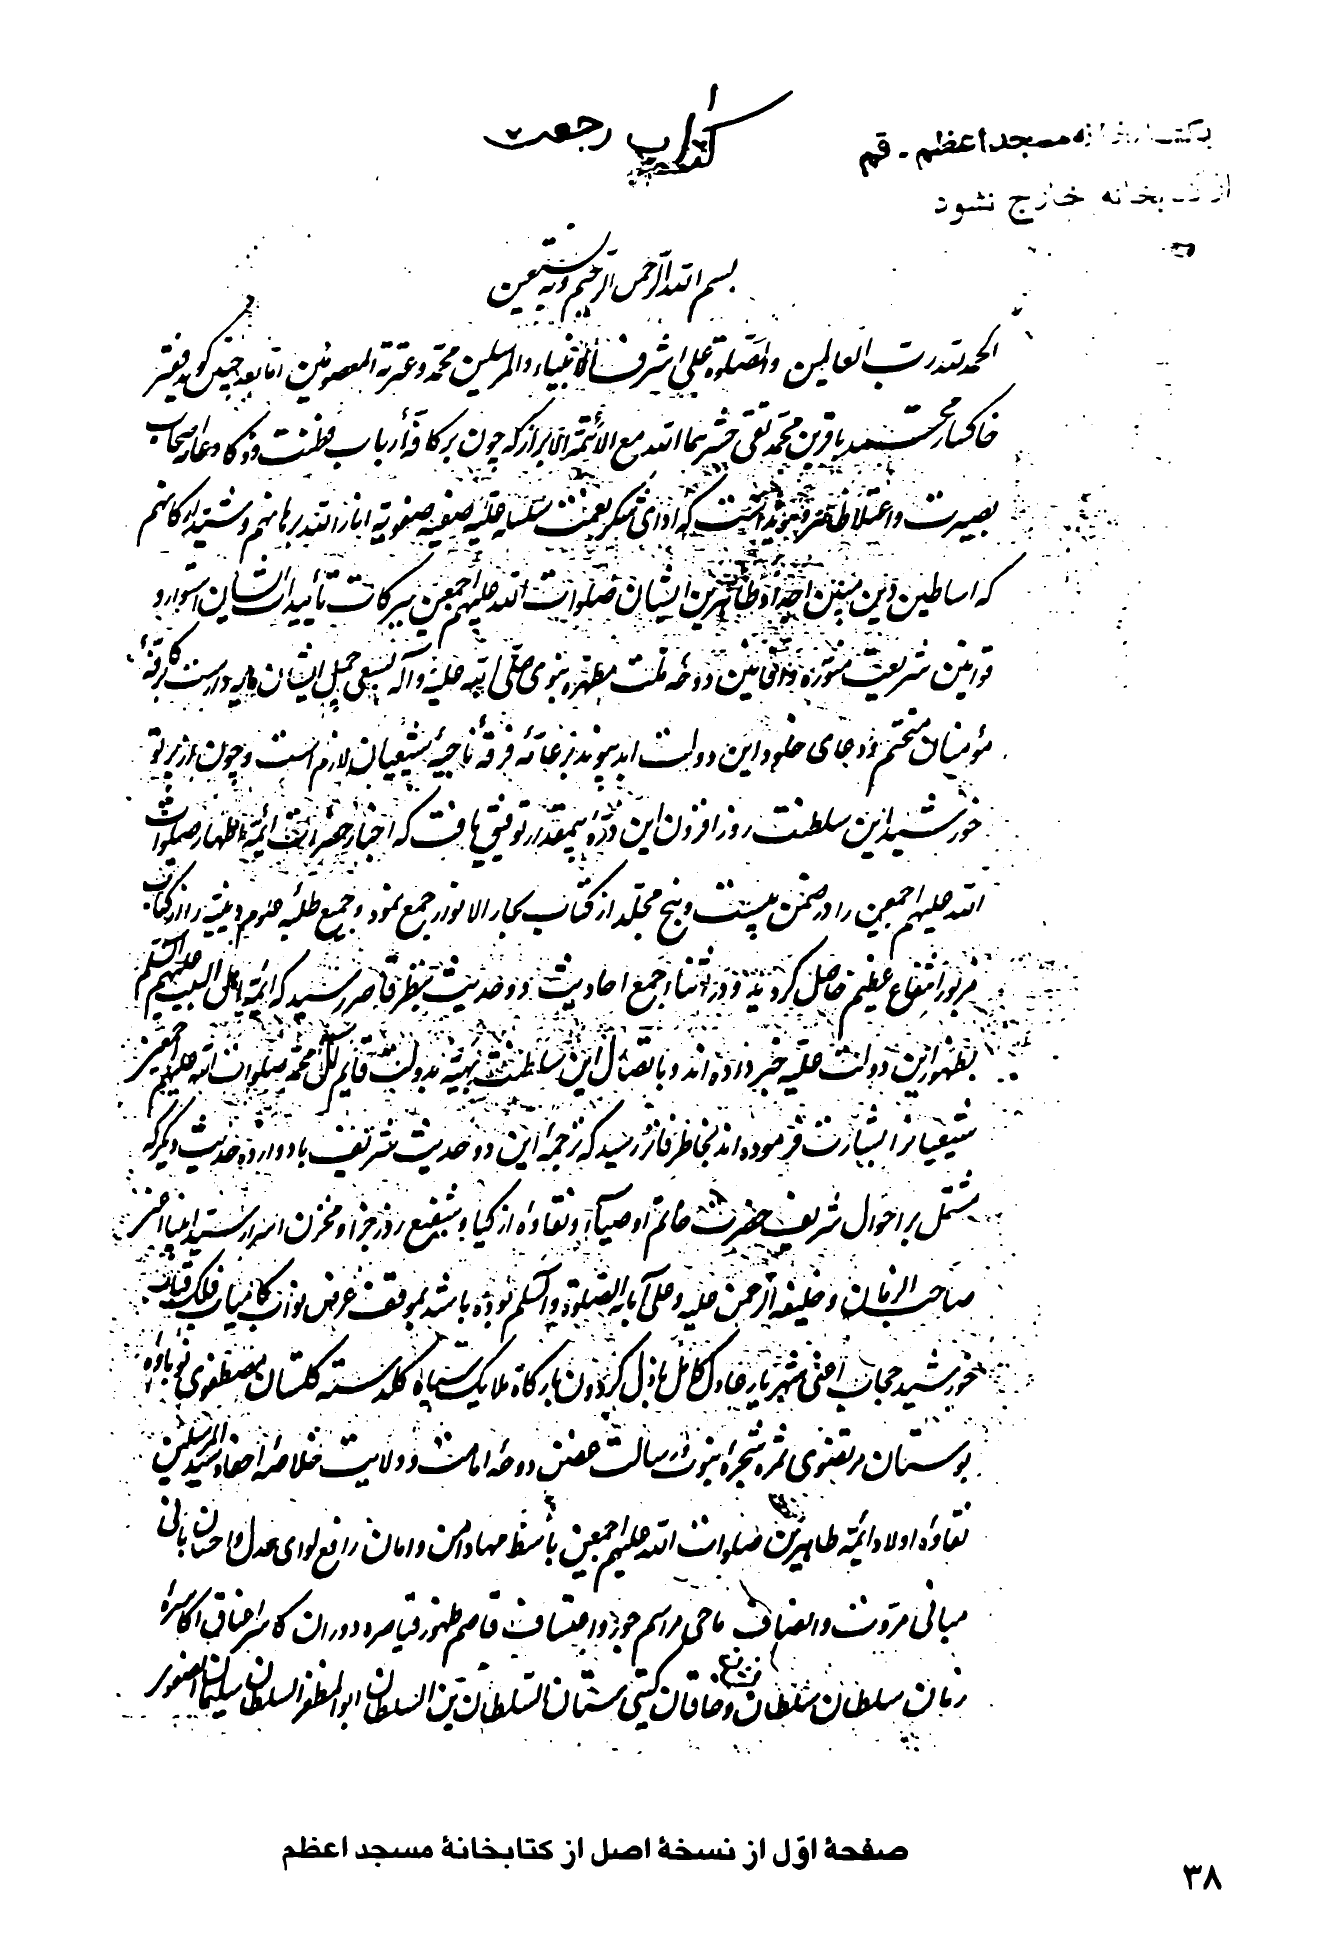 کتاب رجعت
کتابخانه مسجد اعظم - قم
از کتابخانه خارج نشود
بسم الله الرحمن الرحیم وبه نستعین
الحمد لله رب العالمین والصلوة علی اشرف الانبیاء والمرسلین محمد وعترته المعصومین اما بعد چنین کوید فقیر
خاکسار محمد باقر بن محمد تقی حشرهما الله مع الأئمة الابرار که چون بر کافهٔ أرباب فطنت وذکا وعامه اصحاب
بصیرت واعتلا ظاهر وهویداست که ادای شکر نعمت سلسله علیه صفیه صفویه انار الله برهانهم وشید ارکانهم
که اساطین دین مبین اجداد طاهرین ایشان صلوات الله علیهم اجمعین ببرکات تأییدات ایشان استوار و
قوانین شریعت منوره وافانین دوحه ملت مطهره نبوی صلی الله علیه وآله بسعی جمیل ایشان پایدار است بر کافهٔ
مؤمنان متحتم ودعای خلود این دولت ابد پیوند بر عامهٔ فرقهٔ ناجیهٔ شیعیان لازم است وچون از پرتو
خورشید این سلطنت روز افزون این ذرّه بیمقدار توفیق یافت که اخبار حضرات ائمه اطهار صلوات
الله علیهم اجمعین را در ضمن بیست وپنج مجلد از کتاب بحار الانوار جمع نمود وجمیع طلبه علوم دینیه را از کتاب
مزبور انتفاع عظیم حاصل گردید ودر اثناء جمع احادیث دو حدیث بنظر قاصر رسید که ائمه اهل البیت علیهم السلم
بظهور این دولت علیه خبر داده اند وباتصال این سلطنت بهیه بدولت قایم آل محمد صلوات الله علیهم اجمعین
شیعیانرا بشارت فرموده اند بخاطر فاتر رسید که ترجمهٔ این دو حدیث شریف با دوازده حدیث دیگر که
مشتمل بر احوال شریف حضرت خاتم اوصیا ونقاوه ازکیا وشفیع روز جزا ومخزن اسرار سید انبیا اعنی
صاحب الزمان وخلیفه الرحمن علیه وعلی آبائه الصلوة والسلم بوده باشد بموقف عرض نواب کامیاب فلک قباب
خورشید حجاب اعنی شهریار عادل کامل باذل گردون بارگاه ملایک سپاه گلدسته گلستان مصطفوی نوباوه
بوستان مرتضوی ثمره شجره نبوت ورسالت غصن دوحه امامت وولایت خلاصه احفاد سید المرسلین
نقاوه اولاد ائمه طاهرین صلوات الله علیهم اجمعین باسط مهاد امن وامان رافع لوای عدل واحسان بانی
مبانی مروت وانصاف ماحی مراسم جور واعتساف قاصم ظهور قیاصره دوران کاسر اعناق اکاسره
زمان سلطان سلطان نشان وخاقان گیتی ستان السلطان بن السلطان ابو المظفر السلطان سلیمان الصفوی
صفحهٔ اوّل از نسخهٔ اصل از کتابخانهٔ مسجد اعظم
۳۸